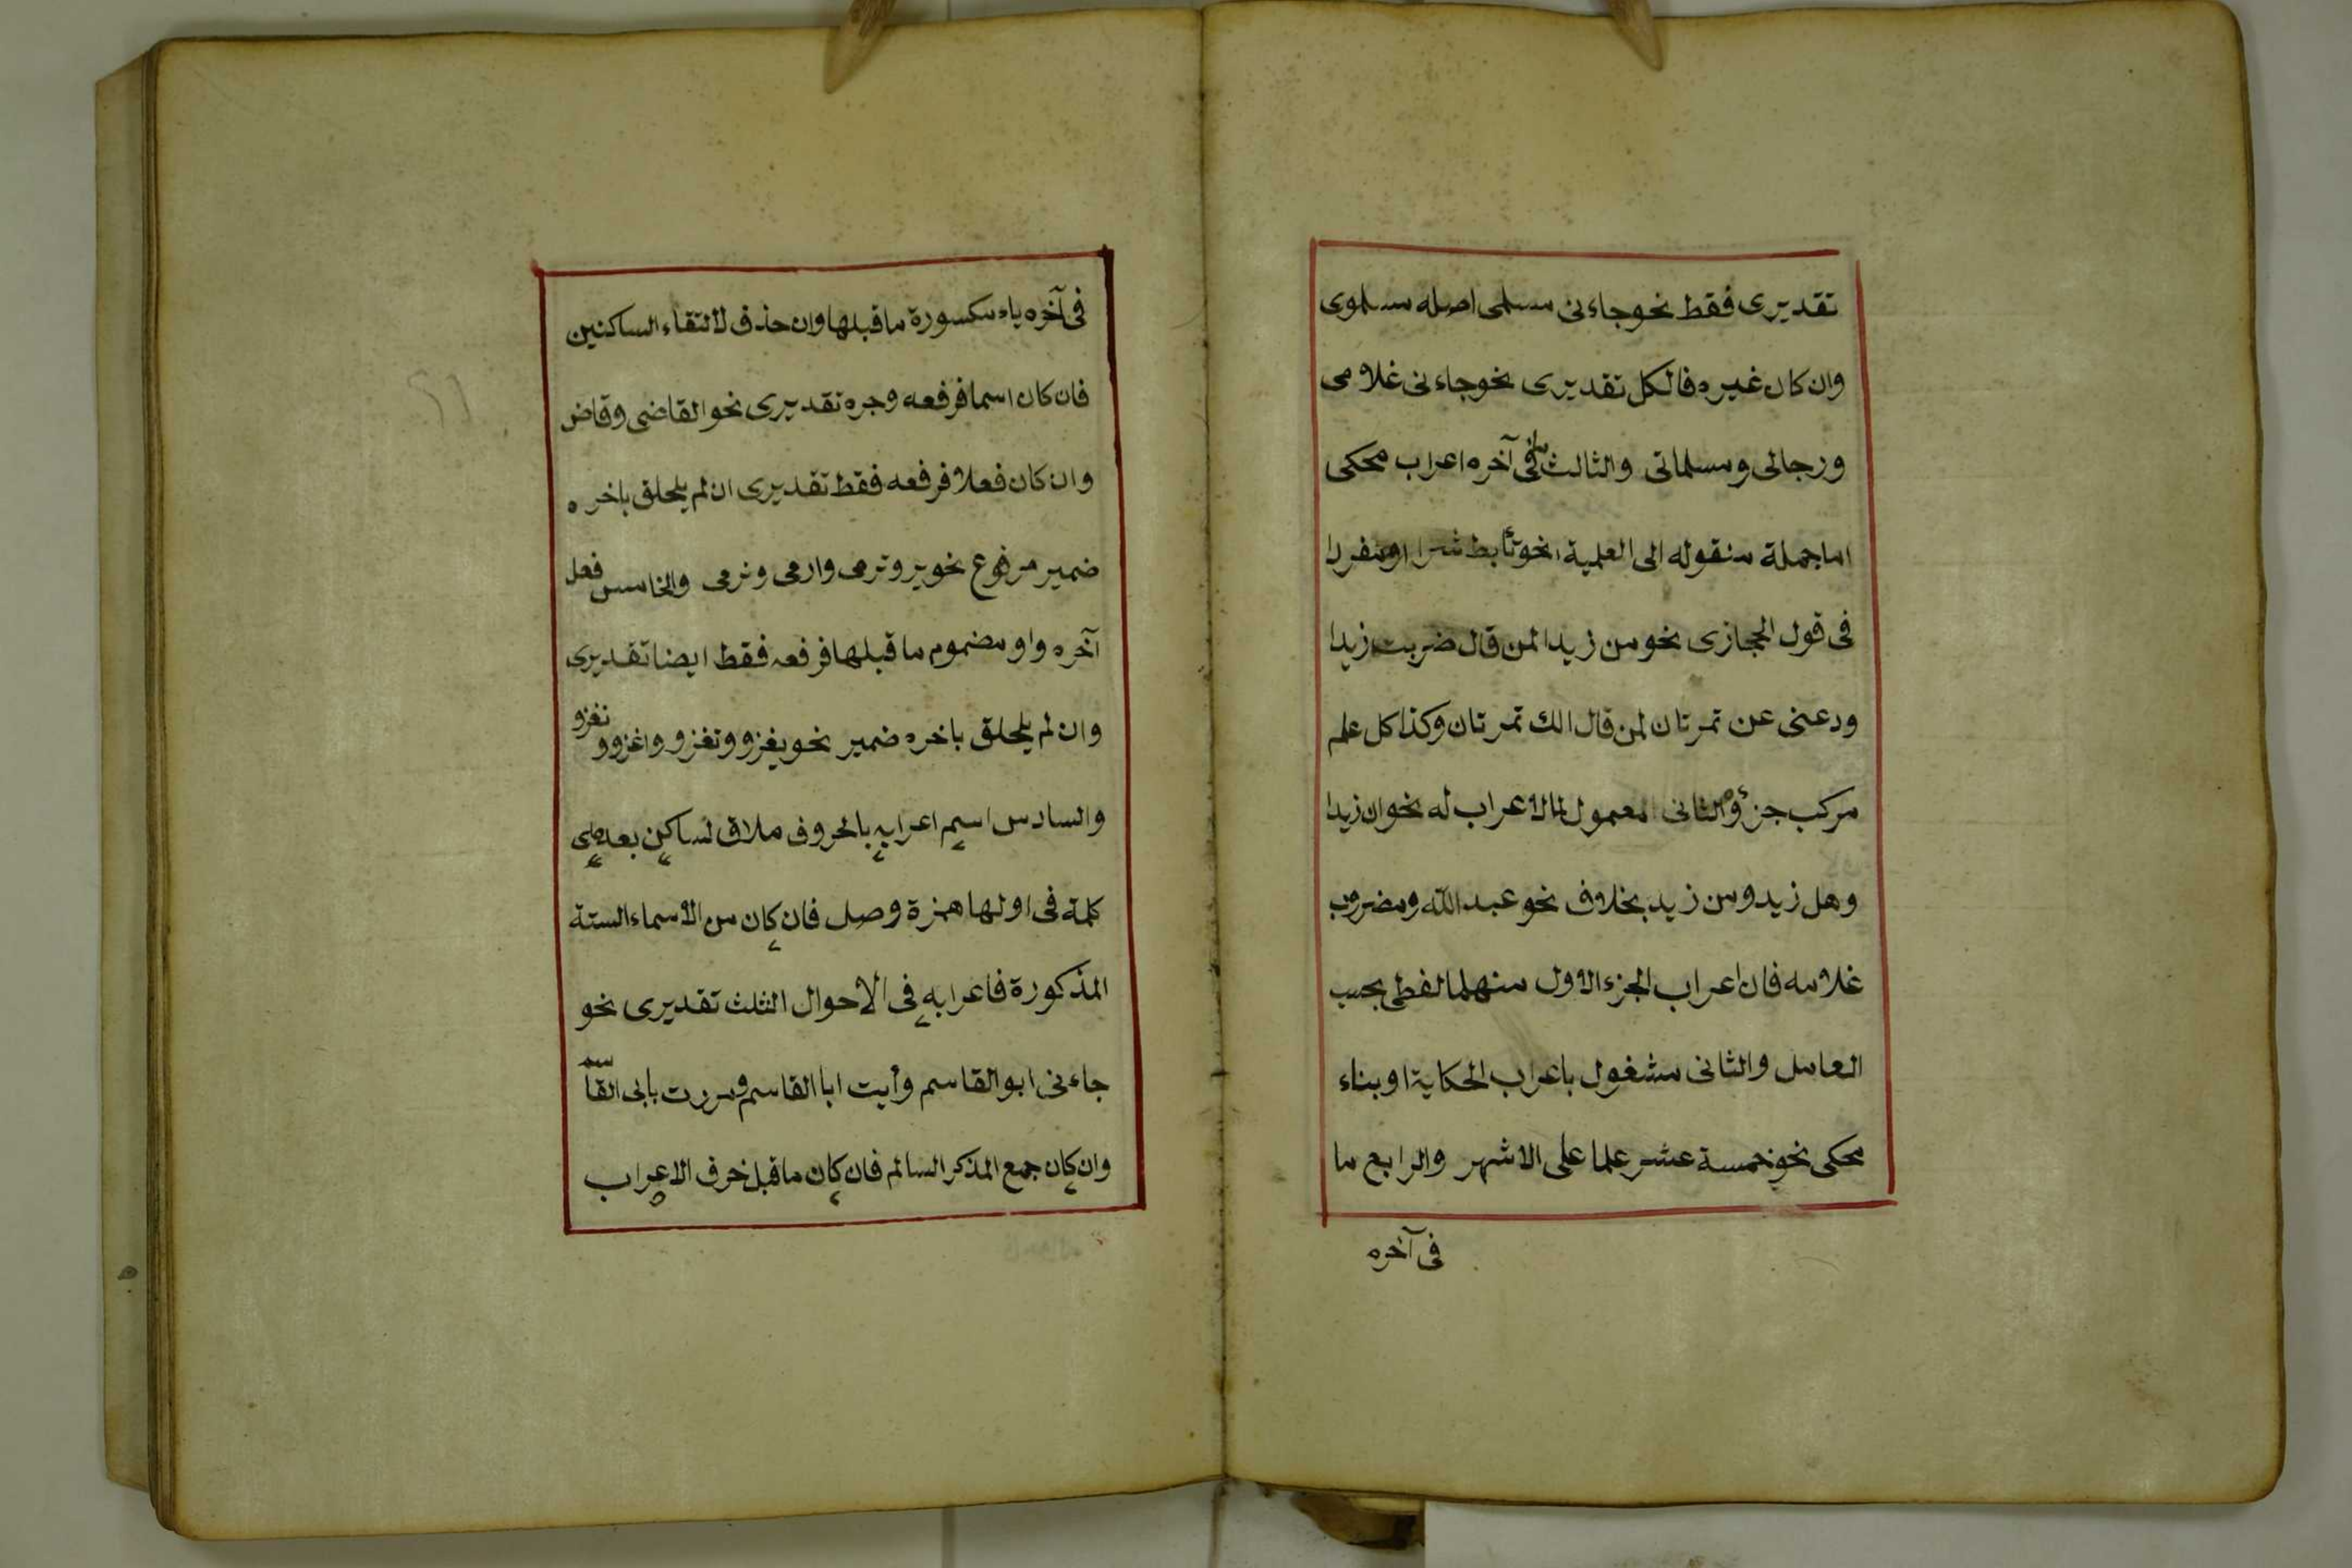 تقديرى فقط نحو جاءنى مسلمى اصله مسلموى
وان كان غيره فالكل تقديرى نحو جاءنى غلامى
ورجالى ومسلماتى والثالث ما فى آخره اعراب محكى
اما جملة منقوله الى العلمية نحو تأبط شرا او مفردا
فى قول الحجازى نحو من زيدا لمن قال ضربت زيدا
ودعنى عن تمرتان لمن قال الك تمرتان وكذا كل علم
مركب جزؤه الثانى معمول لما لا اعراب له نحو ان زيدا
وهل زيد ومن زيد بخلاف نحو عبد الله ومضروب
غلامه فان اعراب الجزء الاول منهما لفظى بحسب
العامل والثانى مشغول باعراب الحكاية او بناء
محكى نحو خمسة عشر علما على الاشهر والرابع ما
فى آخره
فى آخره ياء مكسورة ما قبلها وان حذف لالتقاء الساكنين
فان كان اسما فرفعه وجره تقديرى نحو القاضى وقاض
وان كان فعلا فرفعه فقط تقديرى ان لم يلحلق باخره
ضمير مرفوع نحو يرو ترمى وارمى ونرمى والخامس فعل
آخره واو مضموم ما قبلها فرفعه فقط ايضا تقديرى
وان لم يلحلق باخره ضمير نحو يغزو وتغزو واغزو ونغزو
والسادس اسم اعرابه بالحروف ملاق لساكن بعده
كلمة فى اولها همزة وصل فان كان من الاسماء الستة
المذكورة فاعرابه فى الاحوال الثلث تقديرى نحو
جاءنى ابو القاسم وأيت ابا القاسم ومررت بابى القاسم
وان كان جمع المذكر السالم فان كان ما قبل حرف الاعراب